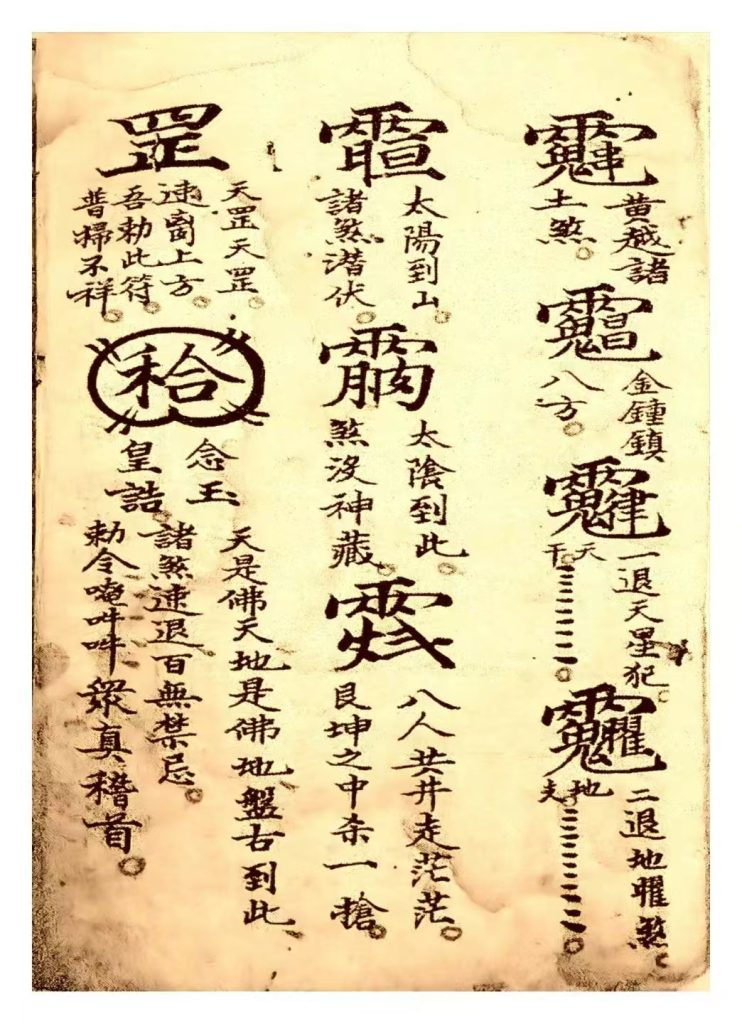 黃越諸
土煞。
金鍾鎮
八方。
一退天星犯。
天
干
二退地曜煞。
地
支
太陽到山。
諸煞潛伏。
太陰到此。
煞沒神藏。
八人共井走茫茫。
艮坤之中杀一搶。
罡
天罡天罡。
速崗上方。
吾勅此符。
普掃不祥。
念玉
皇誥
天是佛天地是佛地盤古到此、
諸煞速退百無禁忌。
勅令唵吽吽眾真稽首。